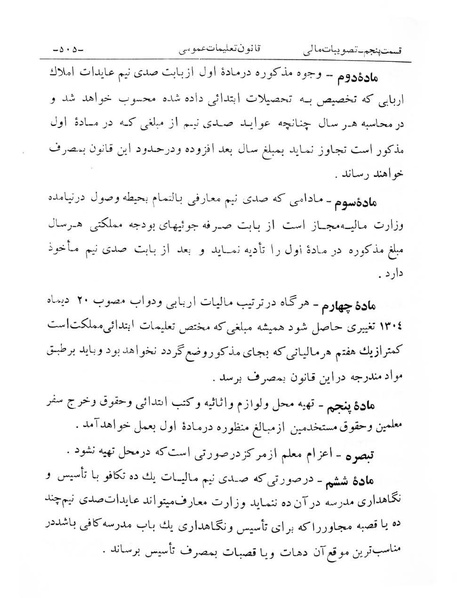 قسمت پنجم - تصویبات مالی    قانون تعلیمات عمومی    -۵۰۵-
مادهٔ دوم - وجوه مذکوره درمادهٔ اول از بابت صدی نیم عایدات املاك
اربابی که تخصیص به تحصیلات ابتدائی داده شده محسوب خواهد شد و
در محاسبه هر سال چنانچه عواید صدی نیم از مبلغی که در مادهٔ اول
مذکور است تجاوز نماید بمبلغ سال بعد افزوده ودرحدود این قانون بمصرف
خواهند رساند .
مادهٔ سوم - مادامی که صدی نیم معارفی بالتمام بحیطه وصول درنیامده
وزارت مالیه مجاز است از بابت صرفه جوئیهای بودجه مملکتی هر سال
مبلغ مذکوره در مادهٔ اول را تأدیه نماید و بعد از بابت صدی نیم مأخوذ
دارد .
مادهٔ چهارم - هرگاه درترتیب مالیات اربابی ودواب مصوب ۲۰ دیماه
۱۳۰٤ تغییری حاصل شود همیشه مبلغی که مختص تعلیمات ابتدائی مملکت است
کمتر از یك هفتم هر مالیاتی که بجای مذکور وضع گردد نخواهد بود و باید برطبق
مواد مندرجه دراین قانون بمصرف برسد .
مادهٔ پنجم - تهیه محل ولوازم و اثاثیه و کتب ابتدائی وحقوق وخرج سفر
معلمین وحقوق مستخدمین از مبالغ منظوره درمادهٔ اول بعمل خواهد آمد .
تبصره - اعزام معلم از مرکز درصورتی است که درمحل تهیه نشود .
مادهٔ ششم - درصورتی که صدی نیم مالیات یك ده تکافو با تأسیس و
نگاهداری مدرسه در آن ده ننماید وزارت معارف میتواند عایدات صدی نیم چند
ده یا قصبه مجاور را که برای تأسیس ونگاهداری یك باب مدرسه کافی باشد در
مناسب‌ترین موقع آن دهات ویا قصبات بمصرف تأسیس برساند .